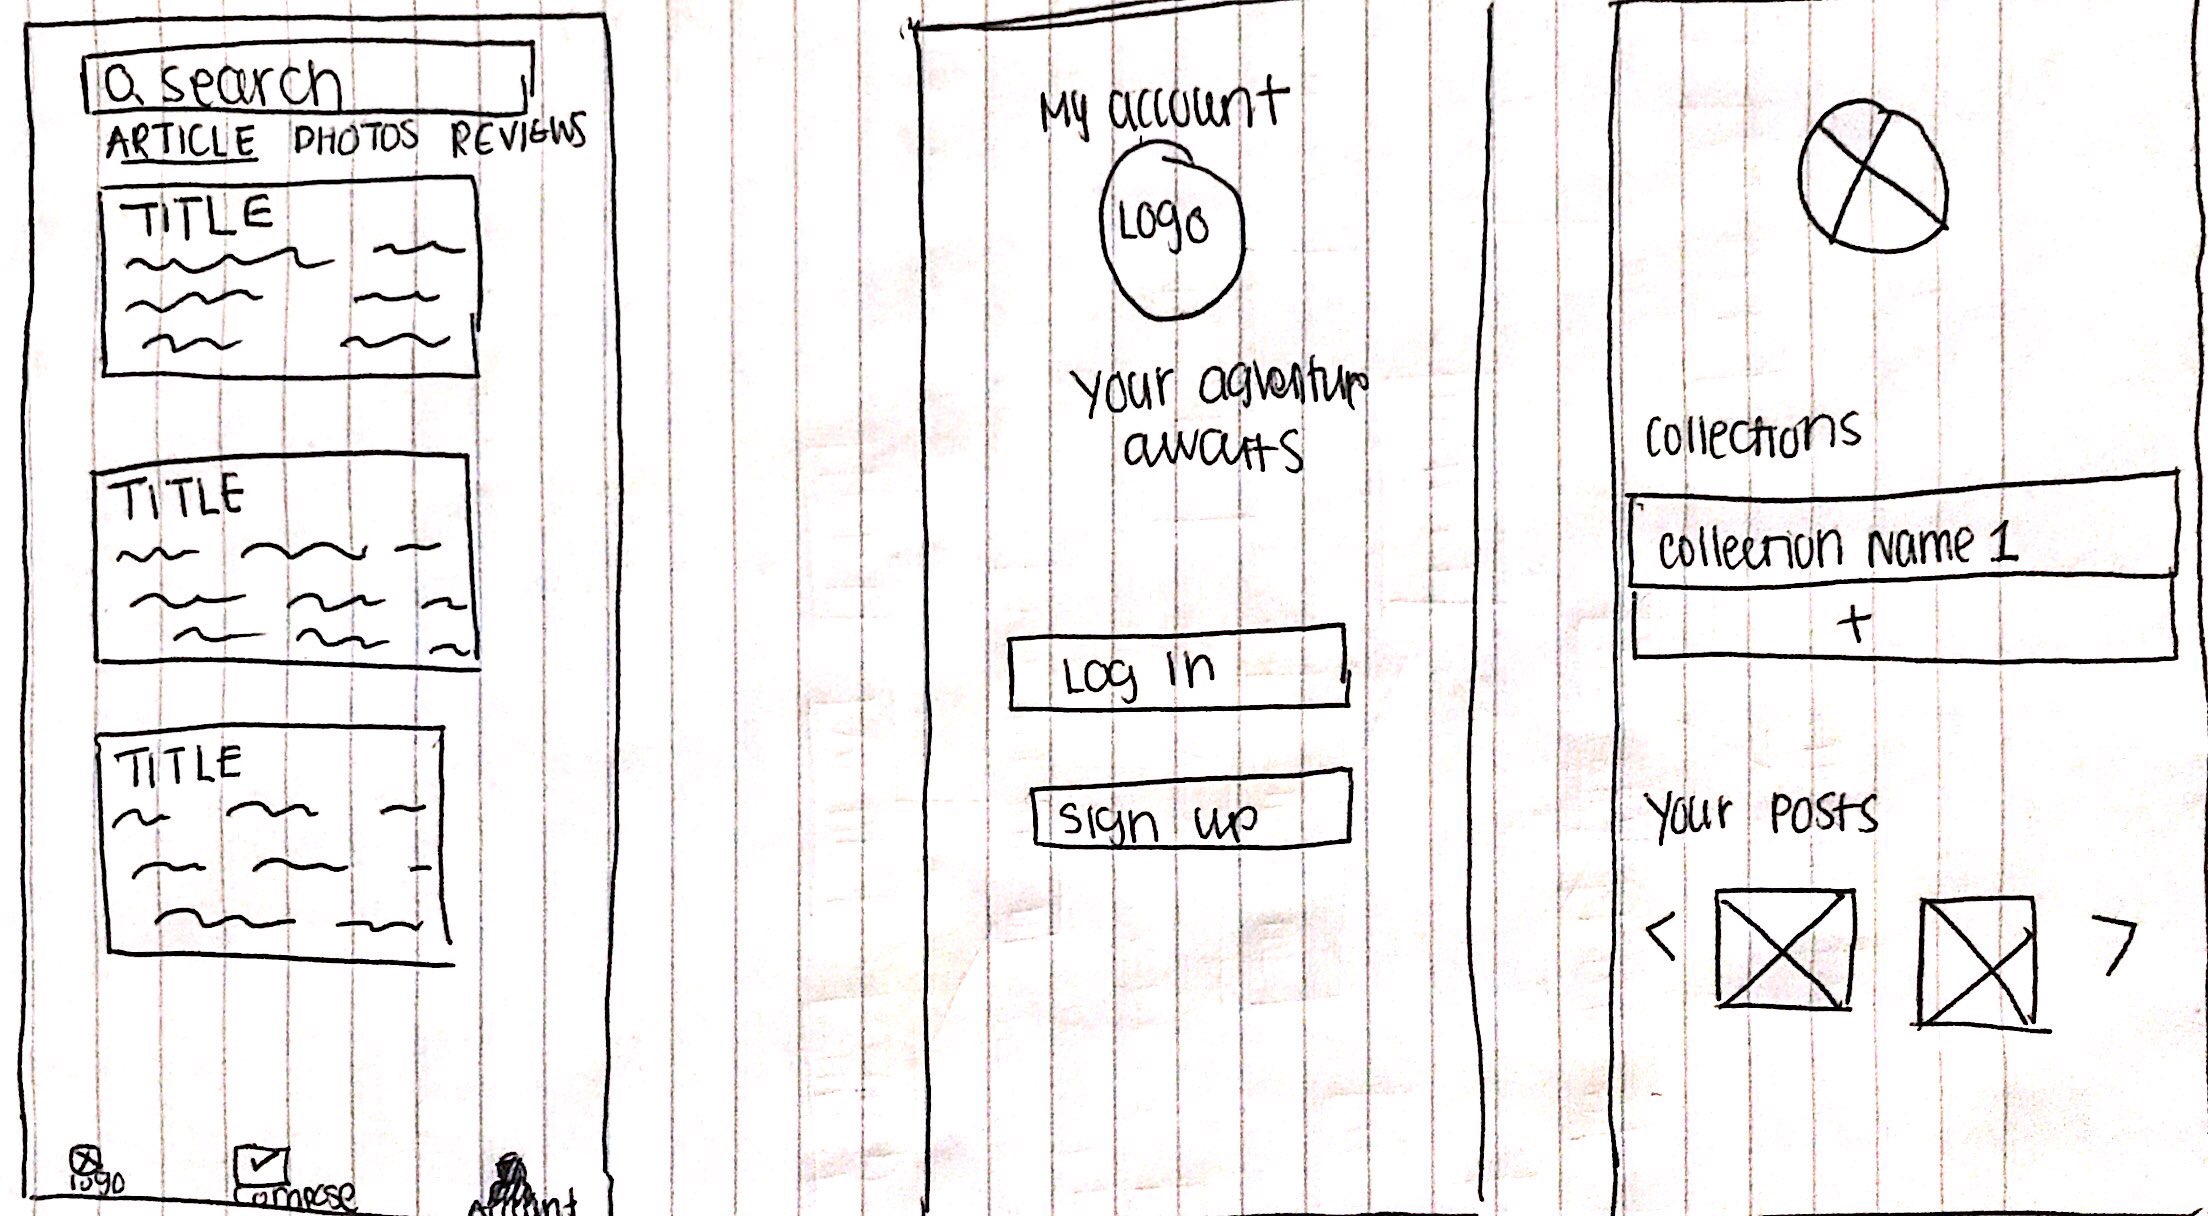 search
ARTICLE PHOTOS REVIEWS
TITLE
TITLE
TITLE
logo
compose
Account
My account
Logo
your adventure
awaits
Log in
sign up
collections
collection Name 1
+
your posts
< >